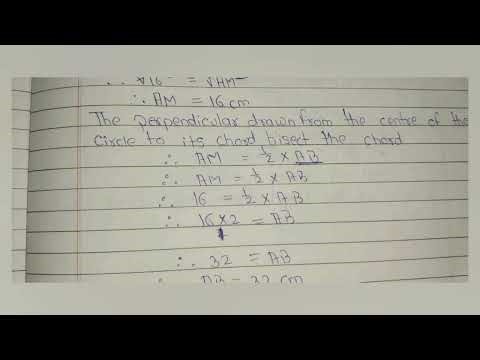 ∴ √16² = √AM²
∴ AM = 16 cm
The perpendicular drawn from the centre of the
circle to its chord bisect the chord
∴ AM = ½ × AB
∴ AM = ½ × AB
∴ 16 = ½ × AB
∴ 16 × 2 = AB
1
∴ 32 = AB
∴ AB = 32 cm